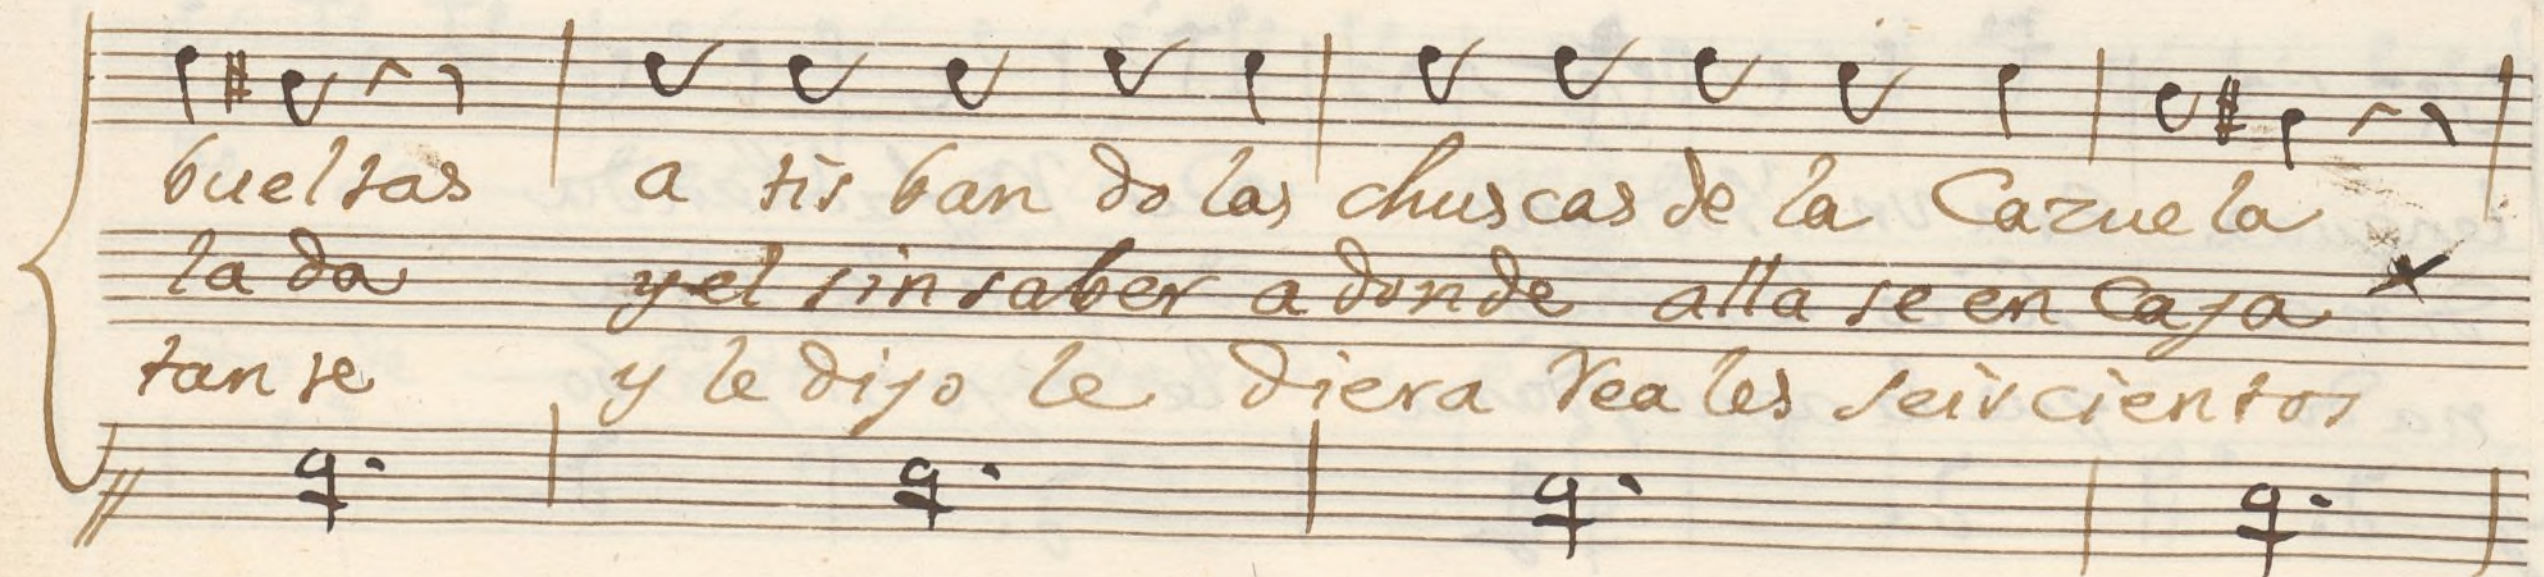 bueltas a tis ban do las chuscas de la Cazue la
la da y el sin saber a donde alla se en Caja
tan se y le dijo le diera Reales seiscientos